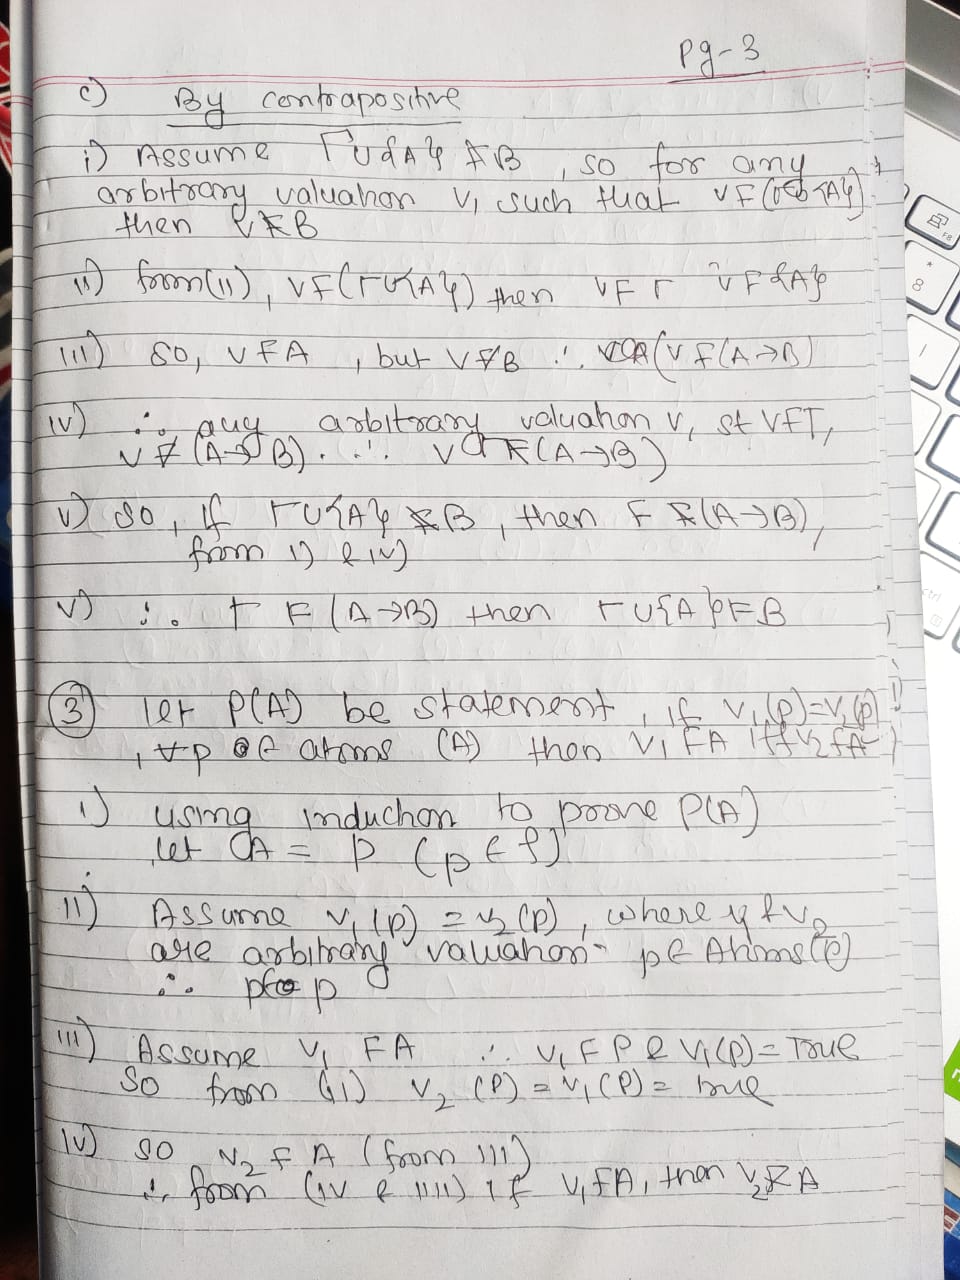 Pg-3
c) By contrapositive
i) Assume Γ∪{A} ⊭ B , so for any
arbitrary valuation v, such that v ⊨ (Γ∪{A})
then v ⊭ B
ii) from(ii), v ⊨ (Γ∪{A}) then v ⊨ Γ v ⊨ {A}
iii) so, v ⊨ A , but v ⊭ B ∴ (v ⊭ (A→B)
iv) ∴ any arbitrary valuation v, st v ⊨ Γ,
v ⊭ (A→B). ∴ v ⊭ (A→B)
v) so, if Γ∪{A} ⊭ B , then Γ ⊭ (A→B),
from i) & iv)
v) ∴ Γ ⊨ (A→B) then Γ∪{A} ⊨ B
3 let P(A) be statement, if v₁(p)=v₂(p)
, ∀p ∈ atoms (A) then v₁ ⊨ A iff v₂ ⊨ A
i) using induction to prove P(A)
let A = p (p ∈ f)
ii) Assume v₁(p) = v₂(p), where v₁ & v₂
are arbitrary valuation p ∈ Atoms(p)
∴ p
iii) Assume v₁ ⊨ A ∴ v₁ ⊨ P & v₁(p) = True
So from (ii) v₂ (P) = v₁(P) = true
iv) so v₂ ⊨ A (from iii)
∴ from (iv & iiii) if v₁ ⊨ A, then v₂ ⊨ A
F8
*
8
/
ctrl